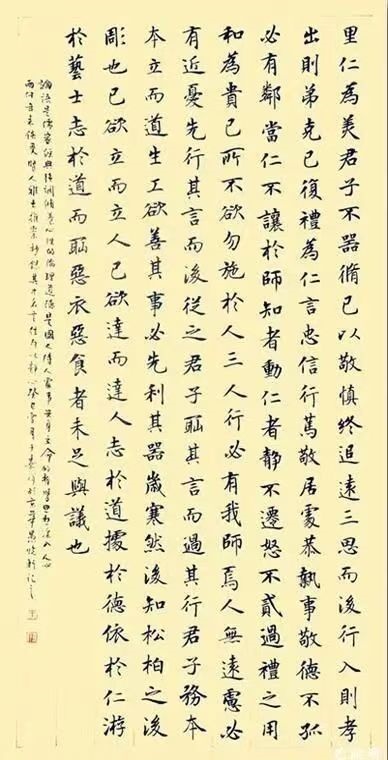 里仁為美君子不器脩己以敬慎終追遠三思而後行入則孝
出則弟克己復禮為仁言忠信行篤敬居處恭執事敬德不孤
必有鄰當仁不讓於師知者動仁者靜不遷怒不貳過禮之用
和為貴己所不欲勿施於人三人行必有我師焉人無遠慮必
有近憂先行其言而後從之君子恥其言而過其行君子務本
本立而道生工欲善其事必先利其器歲寒然後知松柏之後
彫也己欲立而立人己欲達而達人志於道據於德依於仁游
於藝士志於道而恥惡衣惡食者未足與議也
論語是儒家經典強調修養心性的倫理道德是國人待人處事安身立命的哲學思想深入人心